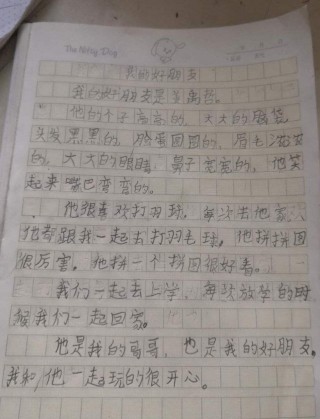 The Milky Dog
我的好朋友
我的好朋友是
他的个子高高的，大大的脑袋，
头发黑黑的，脸蛋圆圆的，眉毛弯弯
的，大大的眼睛，鼻子宽宽的，他笑
起来嘴巴弯弯的。
他很喜欢打羽球，每次去他家，
他都跟我一起去打羽毛球。他拼拼图
很厉害。他拼一个拼图很好看。
我们一起去上学，每次放学的时
候我们一起回家。
他是我的哥哥，也是我的好朋友。
我和他一起玩的很开心。